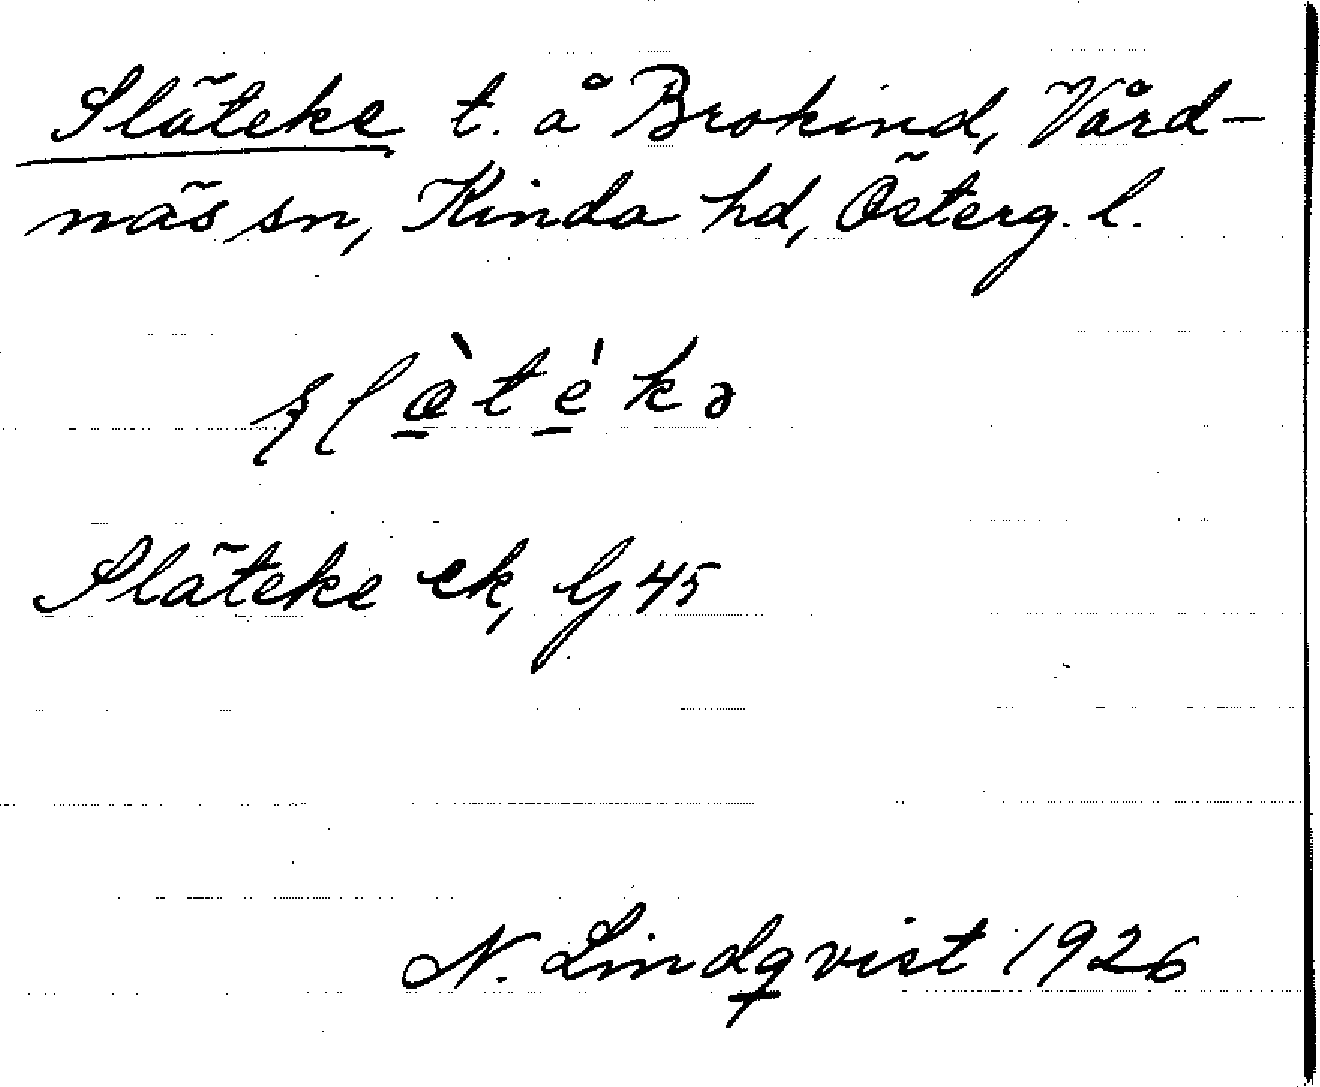 Släteke t. å Brokind, Vård-
näs sn, Kinda hd, Österg. l.
Släteke ek, lj 45
N. Lindqvist 1926